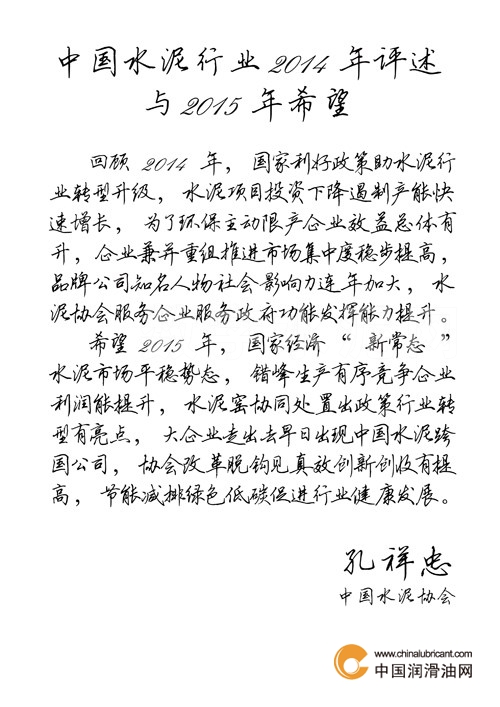 中国水泥行业2014年评述
与2015年希望
回顾 2014 年，国家利好政策助水泥行
业转型升级，水泥项目投资下降遏制产能快
速增长，为了环保主动限产企业效益总体有
升，企业兼并重组推进市场集中度稳步提高，
品牌公司知名人物社会影响力连年加大，水
泥协会服务企业服务政府功能发挥能力提升。
希望 2015 年，国家经济“新常态”
水泥市场平稳势态，错峰生产有序竞争企业
利润能提升，水泥窑协同处置出政策行业转
型有亮点，大企业走出去早日出现中国水泥跨
国公司，协会改革脱钩见真放创新创收有提
高，节能减排绿色低碳促进行业健康发展。
孔祥忠
中国水泥协会
www.chinalubricant.com
中国润滑油网